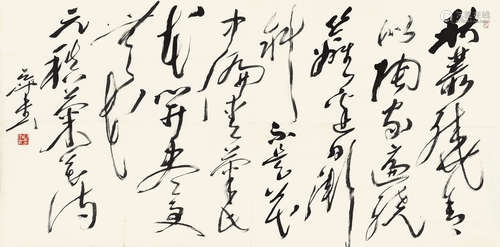 秋叢繞舍
似陶家遍繞
籬邊日漸
斜不是花
中偏愛菊此
花開盡更
無花
元稹菊花詩